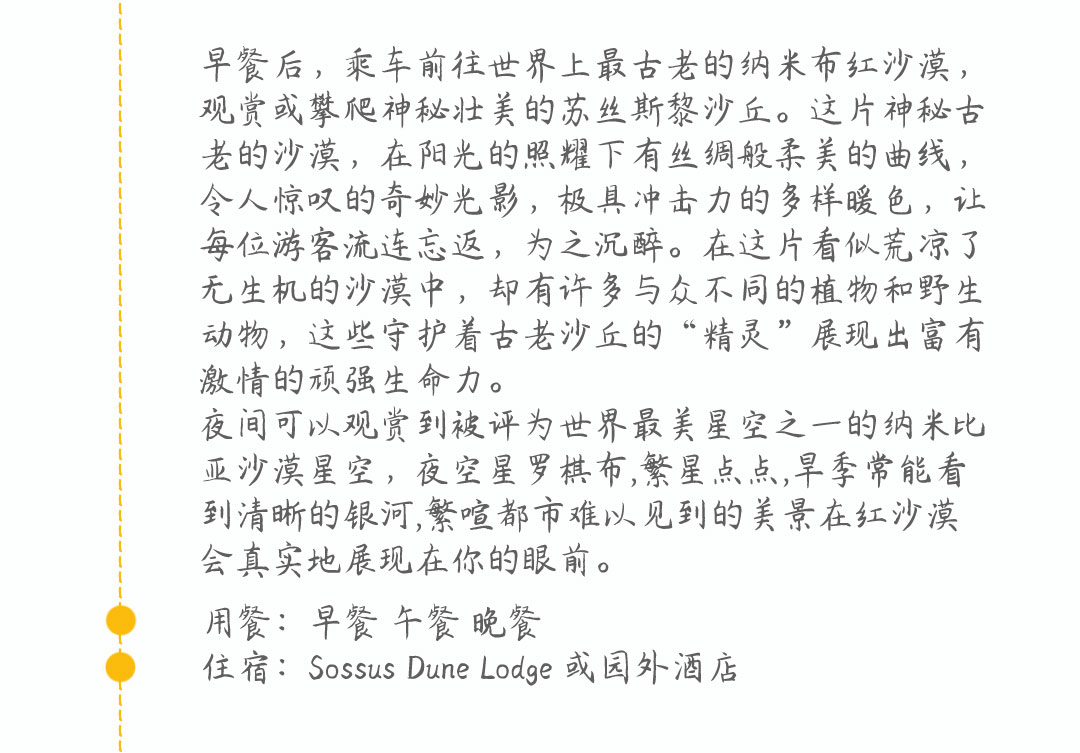 早餐后，乘车前往世界上最古老的纳米布红沙漠，
观赏或攀爬神秘壮美的苏丝斯黎沙丘。这片神秘古
老的沙漠，在阳光的照耀下有丝绸般柔美的曲线，
令人惊叹的奇妙光影，极具冲击力的多样暖色，让
每位游客流连忘返，为之沉醉。在这片看似荒凉了
无生机的沙漠中，却有许多与众不同的植物和野生
动物，这些守护着古老沙丘的“精灵”展现出富有
激情的顽强生命力。
夜间可以观赏到被评为世界最美星空之一的纳米比
亚沙漠星空，夜空星罗棋布,繁星点点,旱季常能看
到清晰的银河,繁喧都市难以见到的美景在红沙漠
会真实地展现在你的眼前。
用餐：早餐 午餐 晚餐
住宿：Sossus Dune Lodge 或园外酒店